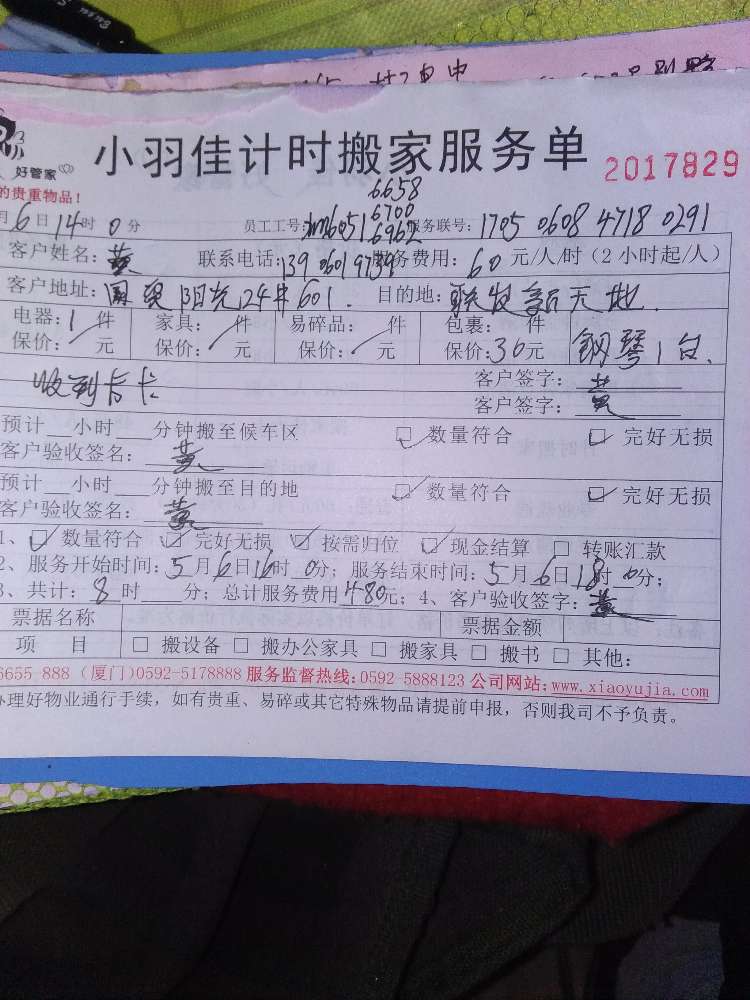 小羽佳计时搬家服务单 2017829
好管家
的贵重物品！
月6日14时0分 员工工号：xm6051 6658 6700 6962 服务联号：1705 0608 4718 0291
客户姓名：黄 联系电话：13906019739 服务费用：60元/人/时（2小时起/人）
客户地址：国贸阳光24#601. 目的地：联发新天地.
电器：1件 家具：/件 易碎品：/件 包裹： 件 钢琴1台.
保价：/元 保价：/元 保价：/元 保价：30元
收到卡卡
客户签字：黄
客户签字：
预计__小时__分钟搬至候车区 ☑ 数量符合 ☑ 完好无损
客户验收签名：黄
预计__小时__分钟搬至目的地 ☑ 数量符合 ☑ 完好无损
客户验收签名：黄
1、☑ 数量符合 ☑ 完好无损 ☑ 按需归位 ☑ 现金结算 □ 转账汇款
2、服务开始时间：5月6日16时0分；服务结束时间：5月6日18时0分；
3、共计：8时 分；总计服务费用480元；4、客户验收签字：黄
票据名称 票据金额
项 目 □ 搬设备 □ 搬办公家具 □ 搬家具 □ 搬书 □ 其他：
6655-888（厦门）0592-5178888 服务监督热线：0592-5888123 公司网站：www.xiaoyujia.com
办理好物业通行手续，如有贵重、易碎或其它特殊物品请提前申报，否则我司不予负责。